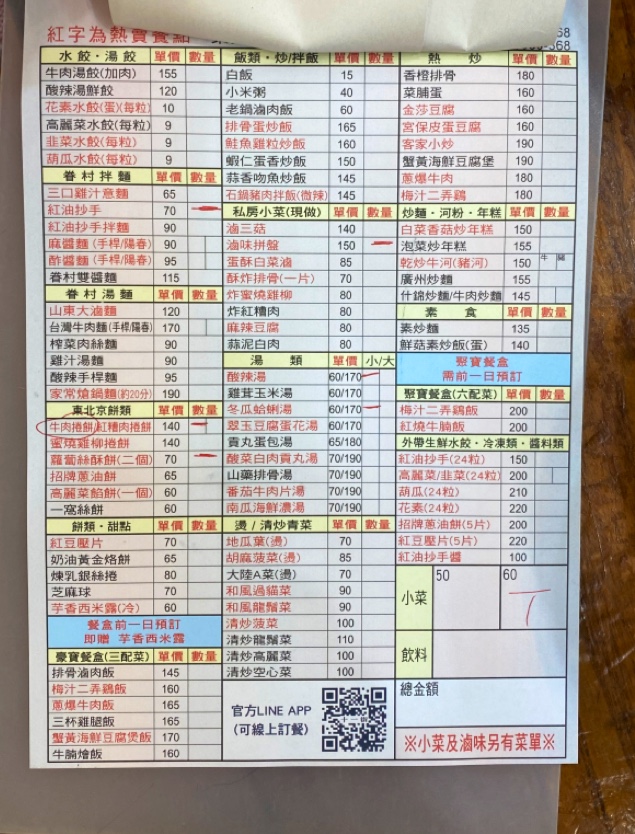 紅字為熱賣餐點
水餃・湯餃 單價 數量
牛肉湯餃(加肉) 155
酸辣湯鮮餃 120
花素水餃(蛋)(每粒) 10
高麗菜水餃(每粒) 9
韭菜水餃(每粒) 9
胡瓜水餃(每粒) 9
眷村拌麵 單價 數量
三口雞汁意麵 65
紅油抄手 70
紅油抄手拌麵 90
麻醬麵(手桿/陽春) 90
酢醬麵(手桿/陽春) 95
眷村雙醬麵 115
眷村湯麵 單價 數量
山東大滷麵 120
台灣牛肉麵(手桿/陽春) 170
榨菜肉絲麵 90
雞汁湯麵 90
酸辣手桿麵 95
家常熗鍋麵(約20分) 190
東北京餅類 單價 數量
牛肉捲餅/紅糟肉捲餅 140
蜜燒雞柳捲餅 140
蘿蔔絲酥餅(二個) 70
招牌蔥油餅 65
高麗菜餡餅(一個) 60
一窩絲餅 60
餅類・甜點 單價 數量
紅豆壓片 70
奶油黃金烙餅 65
煉乳銀絲捲 80
芝麻球 70
芋香西米露(冷) 60
餐盒前一日預訂
即贈 芋香西米露
豪寶餐盒(三配菜) 單價 數量
排骨滷肉飯 145
梅汁二弄雞飯 160
蔥爆牛肉飯 165
三杯雞腿飯 165
蟹黃海鮮豆腐煲飯 170
牛腩燴飯 160
飯類・炒/拌飯 單價 數量
白飯 15
小米粥 40
老鍋滷肉飯 60
排骨蛋炒飯 165
鮭魚雞粒炒飯 160
蝦仁蛋香炒飯 150
蒜香吻魚炒飯 145
石鍋豬肉拌飯(微辣) 145
私房小菜(現做) 單價 數量
滷三菇 140
滷味拼盤 150
蛋酥白菜滷 85
酥炸排骨(一片) 70
炸蜜燒雞柳 80
炸紅糟肉 80
麻辣豆腐 80
蒜泥白肉 80
湯類 單價 小/大
酸辣湯 60/170
雞茸玉米湯 60/170
冬瓜蛤蜊湯 60/170
翠玉豆腐蛋花湯 60/170
貢丸蛋包湯 65/180
酸菜白肉貢丸湯 70/190
山藥排骨湯 70/190
番茄牛肉片湯 70/190
南瓜海鮮濃湯 70/190
燙/清炒青菜 單價 數量
地瓜葉(燙) 70
胡麻菠菜(燙) 85
大陸A菜(燙) 70
和風過貓菜 90
和風龍鬚菜 90
清炒菠菜 100
清炒龍鬚菜 110
清炒高麗菜 100
清炒空心菜 100
官方LINE APP
(可線上訂餐)
熱炒 單價 數量
香橙排骨 180
菜脯蛋 160
金莎豆腐 160
宮保皮蛋豆腐 160
客家小炒 190
蟹黃海鮮豆腐堡 190
蔥爆牛肉 180
梅汁二弄雞 180
炒麵・河粉・年糕 單價 數量
白菜香菇炒年糕 150
泡菜炒年糕 155
乾炒牛河(豬河) 150 牛 豬
廣州炒麵 155
什錦炒麵/牛肉炒麵 145
素食 單價 數量
素炒麵 135
鮮菇素炒飯(蛋) 140
聚寶餐盒
需前一日預訂
聚寶餐盒(六配菜) 單價 數量
梅汁二弄雞飯 200
紅燒牛腩飯 200
外帶生鮮水餃・冷凍類・醬料類
紅油抄手(24粒) 150
高麗菜/韭菜(24粒) 200
胡瓜(24粒) 210
花素(24粒) 220
招牌蔥油餅(5片) 200
紅豆壓片(5片) 220
紅油抄手醬 100
小菜 50 60
飲料
總金額
※小菜及滷味另有菜單※